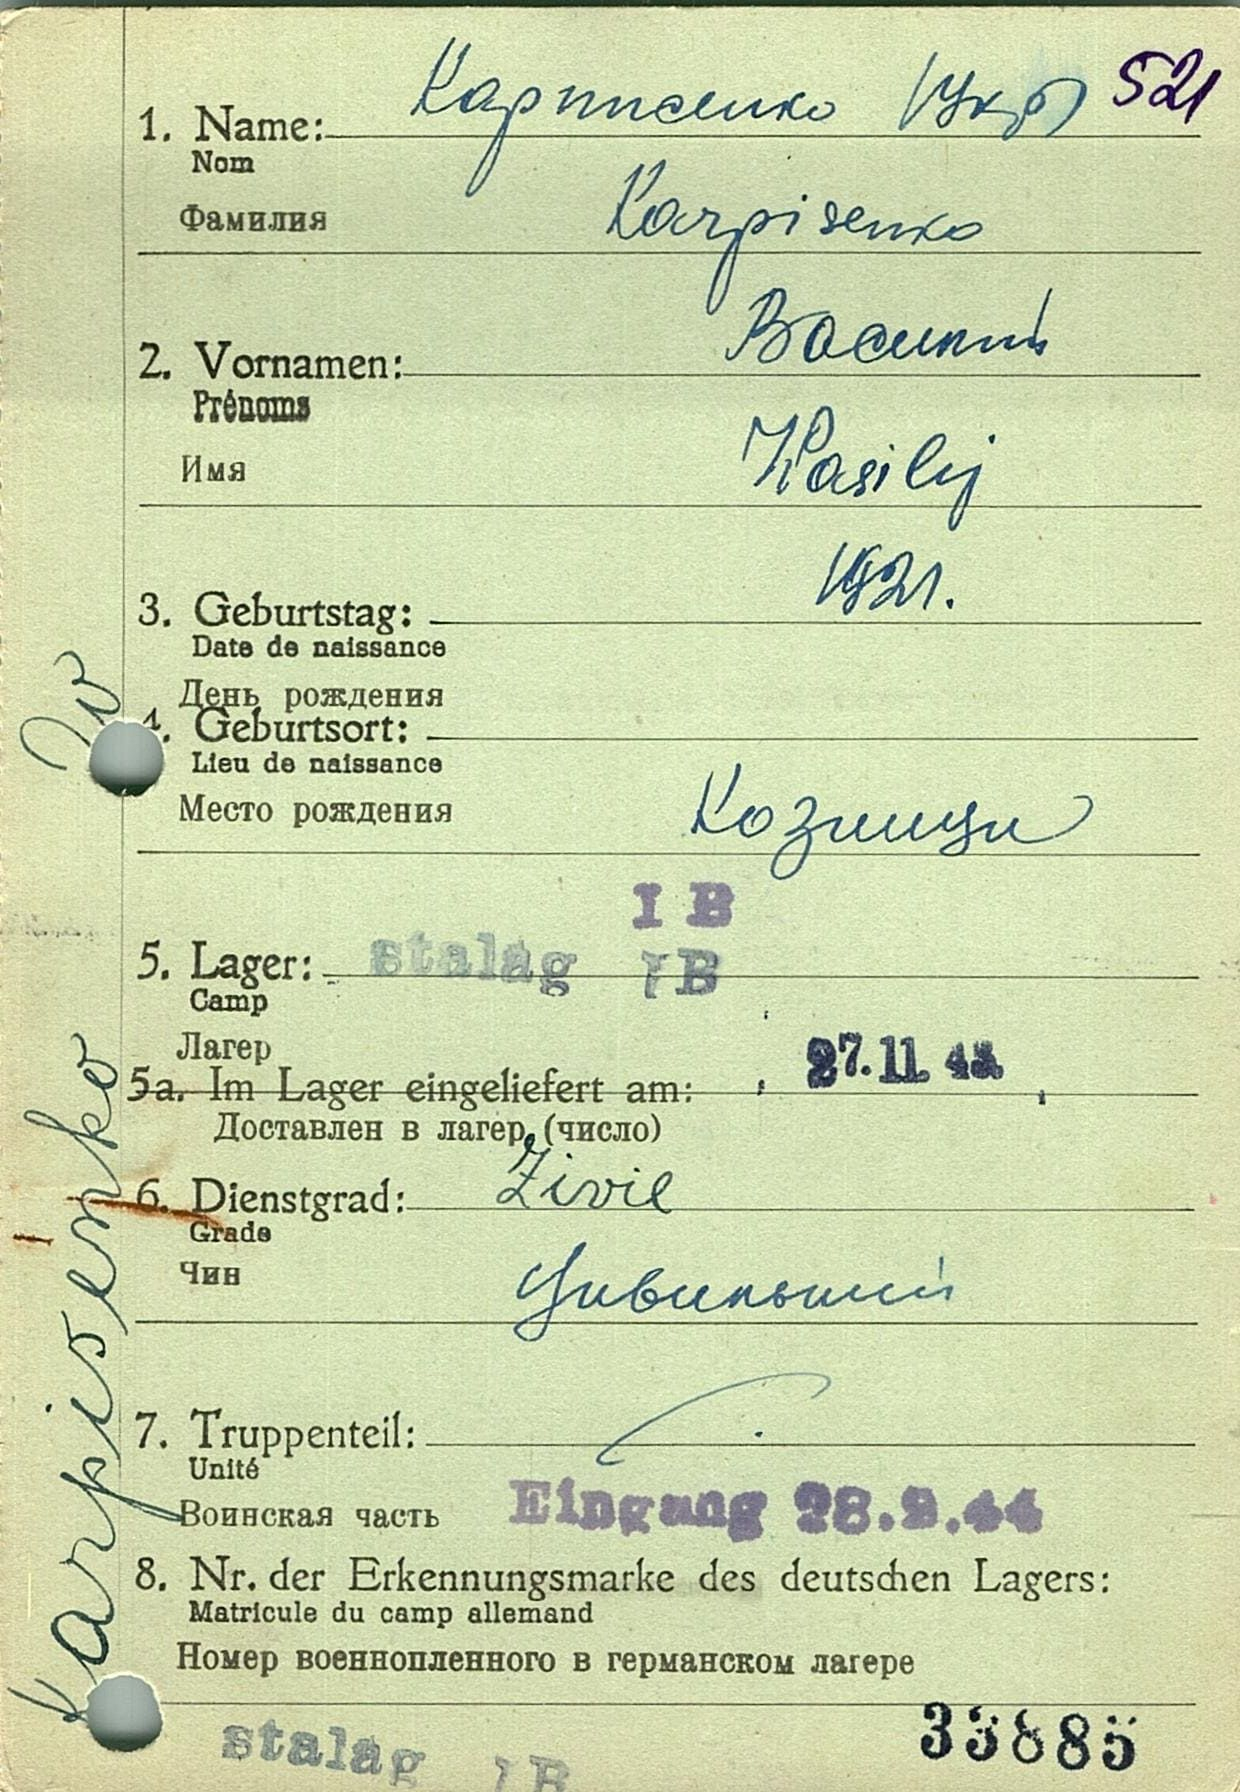 Карписенко (Укр) 521
1. Name:
Nom
Фамилия
Karpisenko
Василий
2. Vornamen:
Prénoms
Имя
Wasilij
1921.
3. Geburtstag:
Date de naissance
День рождения
4. Geburtsort:
Lieu de naissance
Место рождения
Козлищи
I B
5. Lager: stalag IB
Camp
Лагер
5a. Im Lager eingeliefert am: 27.11.43
Доставлен в лагер (число)
6. Dienstgrad: Zivil
Grade
Чин
Цивильный
7. Truppenteil:
Unité
Воинская часть
Eingang 28.9.44
8. Nr. der Erkennungsmarke des deutschen Lagers:
Matricule du camp allemand
Номер военнопленного в германском лагере
33885
stalag IB
Karpisenko